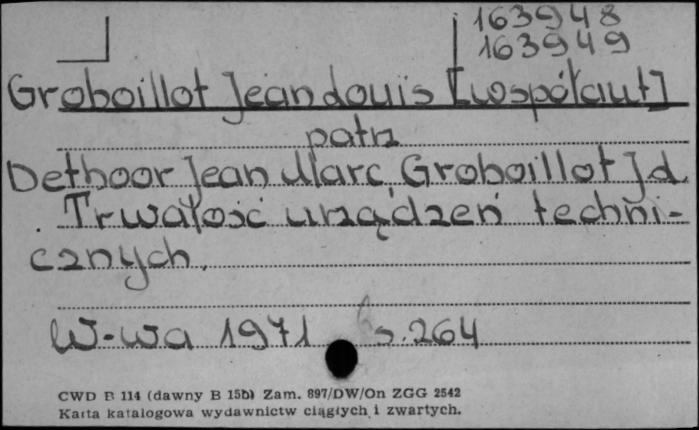 163948
163949
Groboillot Jean Louis [współaut]
patrz
Dethoor Jean Marc, Groboillot J.L.
Trwałość urządzeń techni-
cznych.
W-wa 1971 s. 264
CWD B 114 (dawny B 15b) Zam. 897/DW/On ZGG 2542
Karta katalogowa wydawnictw ciągłych i zwartych.